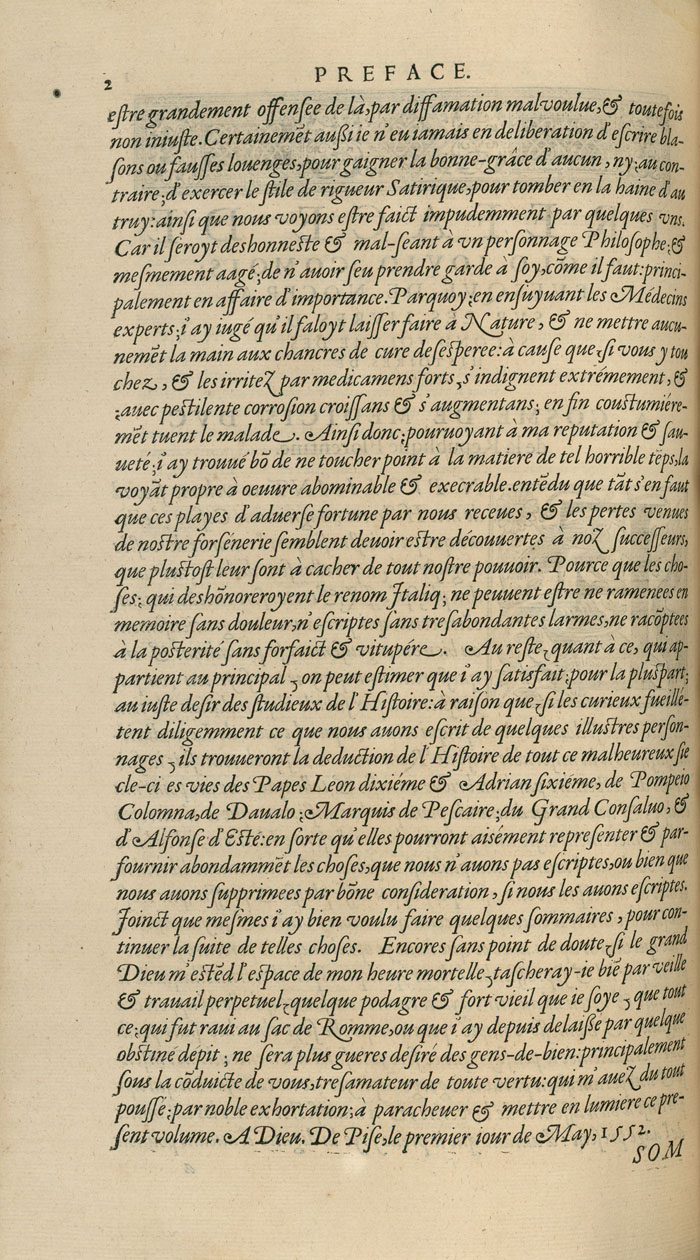 2
PREFACE.
eſtre grandement offenſee de là,par diffamation malvoulue,& toutefois
non iniuſte.Certainemẽt außi ie n'eu iamais en deliberation d'eſcrire bla-
ſons ou fauſſes louenges,pour gaigner la bonne-grâce d'aucun , ny:au con-
traire:d'exercer le ſtile de rigueur Satirique,pour tomber en la haine d'au
truy:ainſi que nous voyons eſtre faict impudemment par quelques vns.
Car il ſeroyt deshonneſte & mal-ſeant à vn perſonnage Philoſophe:&
meſmement aagé:de n'auoir ſeu prendre garde a ſoy,cõme il faut:princi-
palement en affaire d'importance.Parquoy:en enſuyuant les Médecins
experts:i'ay iugé qu'il faloyt laiſſer faire à Nature, & ne mettre aucu-
nemẽt la main aux chancres de cure deſeſperee:à cauſe que,ſi vous y tou
chez, & les irritez par medicamens forts,s'indignent extrémement, &
:auec peſtilente corroſion croiſſans & s'augmentans: en fin couſtumiére-
mẽt tuent le malade. Ainſi donc:pouruoyant à ma reputation & ſau-
ueté:i'ay trouué bõ de ne toucher point à la matiere de tel horrible tẽps,la
voyãt propre à oeuure abominable & execrable.entẽdu que tãt s'en faut
que ces playes d'aduerſe fortune par nous receues, & les pertes venues
de noſtre forſénerie ſemblent deuoir eſtre découuertes à noz ſucceſſeurs,
que pluſtoſt leur ſont à cacher de tout noſtre pouuoir. Pource que les cho-
ſes: qui deshõnoreroyent le renom Italiq; ne peuuent eſtre ne ramenees en
memoire ſans douleur,n'eſcriptes ſans treſabondantes larmes,ne racõptees
à la poſterité ſans forfaict & vitupére. Au reſte,quant à ce, qui ap-
partient au principal,on peut eſtimer que i'ay ſatisfait:pour la pluſpart:
au iuſte deſir des ſtudieux de l'Hiſtoire:à raiſon que,ſi les curieux fueillé-
tent diligemment ce que nous auons eſcrit de quelques illuſtres perſon-
nages, ils trouueront la deduction de l'Hiſtoire de tout ce malheureux ſie
cle-ci es vies des Papes Leon dixiéme & Adrian ſixieme, de Pompeio
Colomna,de Daualo:Marquis de Peſcaire:du Grand Conſaluo, &
d'Alfonſe d'Eſté:en ſorte qu'elles pourront aisément repreſenter & par-
fournir abondammẽt les choſes,que nous n'auons pas eſcriptes,ou bien que
nous auons ſupprimees par bõne conſideration, ſi nous les auons eſcriptes.
Joinct que meſmes i'ay bien voulu faire quelques ſommaires, pour con-
tinuer la ſuite de telles choſes. Encores ſans point de doute,ſi le grand
Dieu m'eſtẽd l'eſpace de mon heure mortelle,taſcheray-ie biẽ par veille
& trauail perpetuel,quelque podagre & fort vieil que ie ſoye, que tout
ce:qui fut raui au ſac de Romme,ou que i'ay depuis delaißé par quelque
obſtiné dépit; ne ſera plus gueres deſiré des gens-de-bien:principalement
ſous la cõduicte de vous,treſamateur de toute vertu:qui m'auez du tout
pouſſé:par noble exhortation:à paracheuer & mettre en lumiere ce pre-
ſent volume. A Dieu. De Piſe,le premier iour de May, 1552.
SOM